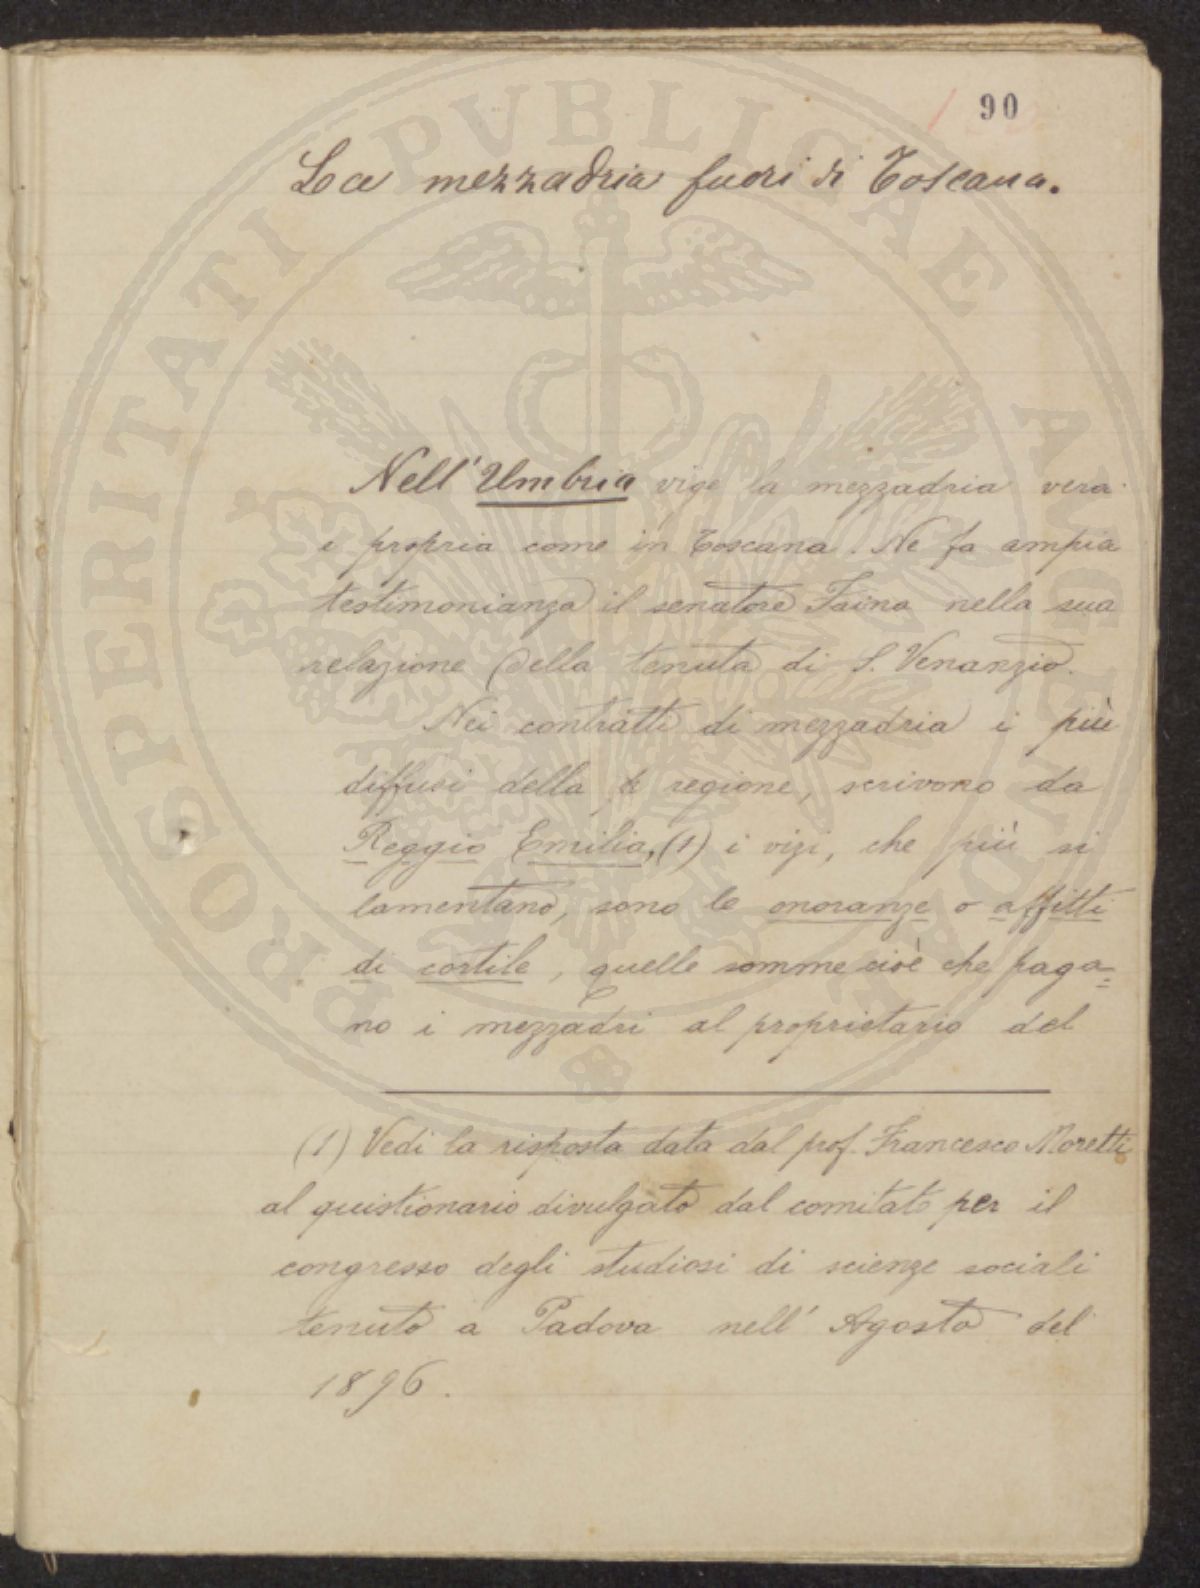 90
La mezzadria fuori di Toscana.
Nell'Umbria vige la mezzadria vera
e propria come in Toscana. Ne fa ampia
testimonianza il senatore Faina nella sua
relazione della tenuta di S. Venanzio.
Nei contratti di mezzadria i più
diffusi della regione, scrivono da
Reggio Emilia, (1) i vizi, che più si
lamentano, sono le onoranze o affitti
di cortile, quelle somme cioè che paga=
no i mezzadri al proprietario del
(1) Vedi la risposta data dal prof. Francesco Moretti
al quistionario divulgato dal comitato per il
congresso degli studiosi di scienze sociali
tenuto a Padova nell'Agosto del
1896.
PROSPERITATI PVBLICAE AVGENDAE